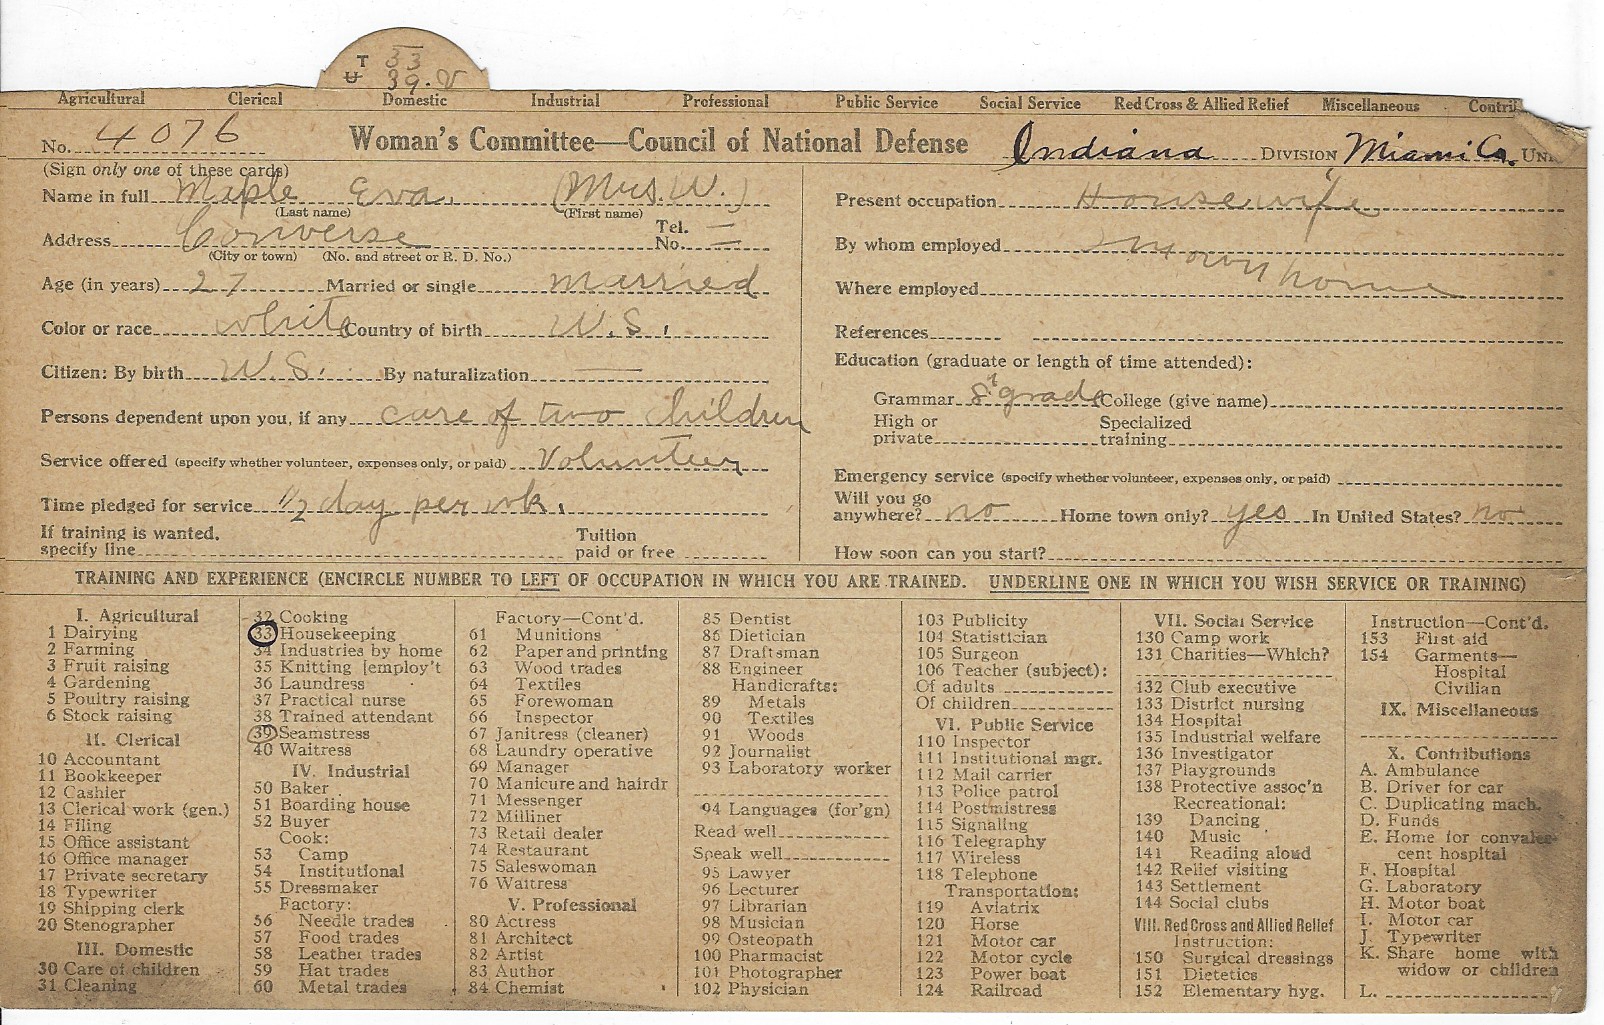 T 33
U 39. V
Agricultural Clerical Domestic Industrial Professional Public Service Social Service Red Cross & Allied Relief Miscellaneous Contri
No. 4076 Woman's Committee—Council of National Defense Indiana DIVISION Miami Co. UN
(Sign only one of these cards)
Name in full Maple Eva. (Mrs. W.)
(Last name) (First name)
Address Converse Tel. No. —
(City or town) (No. and street or R. D. No.)
Age (in years) 27 Married or single married
Color or race white Country of birth U.S.
Citizen: By birth U.S. By naturalization —
Persons dependent upon you, if any care of two children
Service offered (specify whether volunteer, expenses only, or paid) Volunteer
Time pledged for service 1/2 day per wk.
If training is wanted, specify line Tuition paid or free
Present occupation Housewife
By whom employed In own home
Where employed
References
Education (graduate or length of time attended):
Grammar 8th grade College (give name)
High or private Specialized training
Emergency service (specify whether volunteer, expenses only, or paid)
Will you go anywhere? no Home town only? yes In United States? no
How soon can you start?
TRAINING AND EXPERIENCE (ENCIRCLE NUMBER TO LEFT OF OCCUPATION IN WHICH YOU ARE TRAINED. UNDERLINE ONE IN WHICH YOU WISH SERVICE OR TRAINING)
I. Agricultural
1 Dairying
2 Farming
3 Fruit raising
4 Gardening
5 Poultry raising
6 Stock raising
II. Clerical
10 Accountant
11 Bookkeeper
12 Cashier
13 Clerical work (gen.)
14 Filing
15 Office assistant
16 Office manager
17 Private secretary
18 Typewriter
19 Shipping clerk
20 Stenographer
III. Domestic
30 Care of children
31 Cleaning
32 Cooking
33 Housekeeping
34 Industries by home
35 Knitting [employ't
36 Laundress
37 Practical nurse
38 Trained attendant
39 Seamstress
40 Waitress
IV. Industrial
50 Baker
51 Boarding house
52 Buyer
Cook:
53 Camp
54 Institutional
55 Dressmaker
Factory:
56 Needle trades
57 Food trades
58 Leather trades
59 Hat trades
60 Metal trades
Factory—Cont'd.
61 Munitions
62 Paper and printing
63 Wood trades
64 Textiles
65 Forewoman
66 Inspector
67 Janitress (cleaner)
68 Laundry operative
69 Manager
70 Manicure and hairdr
71 Messenger
72 Milliner
73 Retail dealer
74 Restaurant
75 Saleswoman
76 Waitress
V. Professional
80 Actress
81 Architect
82 Artist
83 Author
84 Chemist
85 Dentist
86 Dietician
87 Draftsman
88 Engineer
Handicrafts:
89 Metals
90 Textiles
91 Woods
92 Journalist
93 Laboratory worker
94 Languages (for'gn)
Read well
Speak well
95 Lawyer
96 Lecturer
97 Librarian
98 Musician
99 Osteopath
100 Pharmacist
101 Photographer
102 Physician
103 Publicity
104 Statistician
105 Surgeon
106 Teacher (subject):
Of adults
Of children
VI. Public Service
110 Inspector
111 Institutional mgr.
112 Mail carrier
113 Police patrol
114 Postmistress
115 Signaling
116 Telegraphy
117 Wireless
118 Telephone
Transportation:
119 Aviatrix
120 Horse
121 Motor car
122 Motor cycle
123 Power boat
124 Railroad
VII. Social Service
130 Camp work
131 Charities—Which?
132 Club executive
133 District nursing
134 Hospital
135 Industrial welfare
136 Investigator
137 Playgrounds
138 Protective assoc'n
Recreational:
139 Dancing
140 Music
141 Reading aloud
142 Relief visiting
143 Settlement
144 Social clubs
VIII. Red Cross and Allied Relief
Instruction:
150 Surgical dressings
151 Dietetics
152 Elementary hyg.
Instruction—Cont'd.
153 First aid
154 Garments—
Hospital
Civilian
IX. Miscellaneous
X. Contributions
A. Ambulance
B. Driver for car
C. Duplicating mach.
D. Funds
E. Home for convales-
cent hospital
F. Hospital
G. Laboratory
H. Motor boat
I. Motor car
J. Typewriter
K. Share home with
widow or children
L.